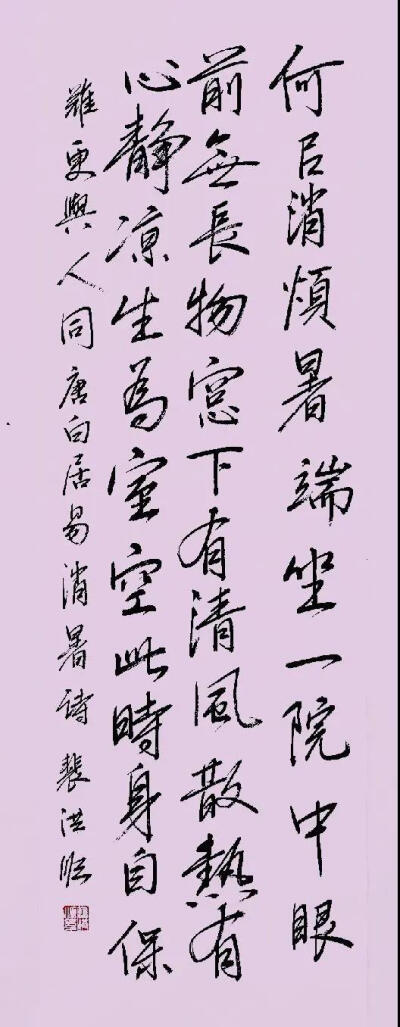 何以消煩暑端坐一院中眼
前無長物窓下有清風散熱有
心静凉生為室空此時身自保
難更與人同唐白居易消暑诗裴洪順